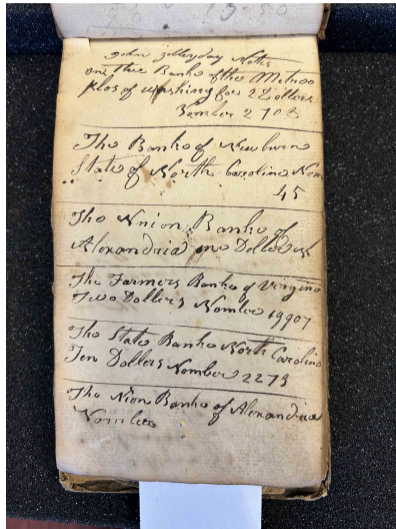 John Notes
on the Banke of the Metroo
plos of washing for 2 Dollers
Nomber 2703
The Banke of Newburn
State of North Carolina Nom
45
The Union Banke of
Alexandria one Doller N
The Farmers Banke of Virginia
Two Dollers Nomber 19907
The State Banke North Carolina
Ten Dollers Nomber 2273
The Nion Banke of Alexandria
Nomber